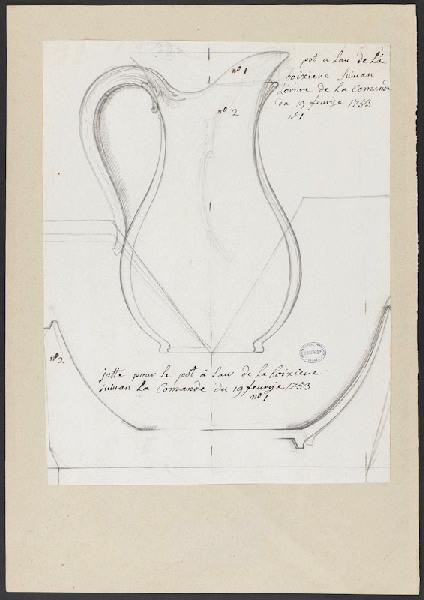 pot a lau de La
Loixiere suivan
L'ordre de La Comande
du 19 feurije 1753
n° 1
n° 1
n° 2
n° 3.
jatte pour le pot à lau de La Loixiere
suivan La Comande du 19 feurije 1753
n° 1